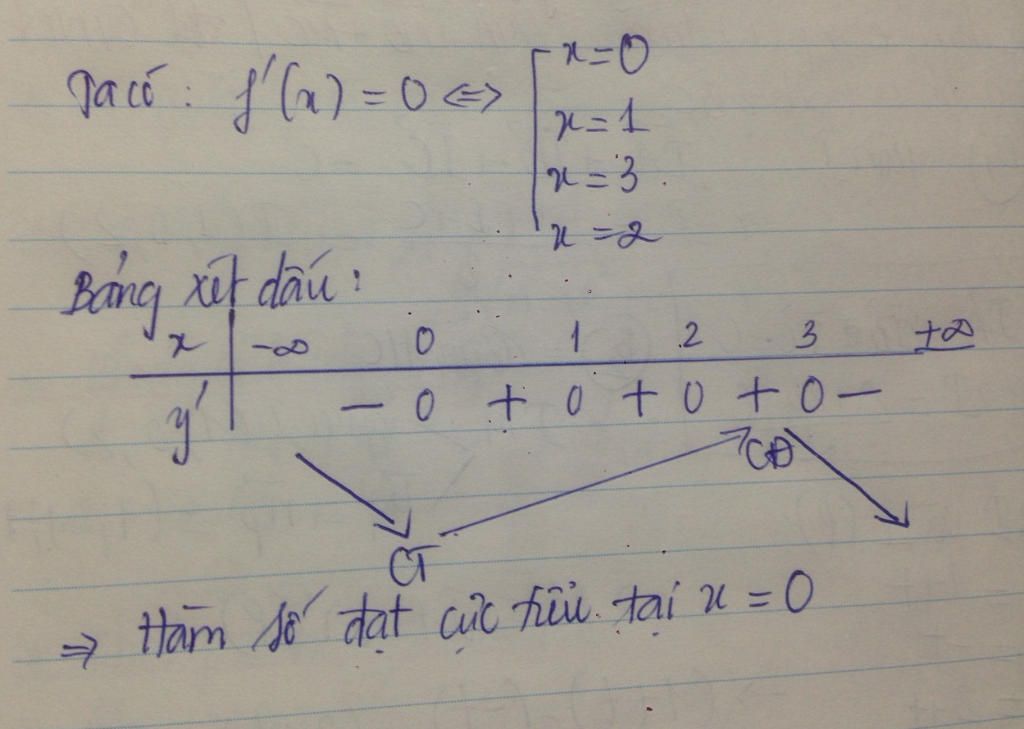 Ta có : f'(x) = 0 <=> [ x = 0
x = 1
x = 3
x = 2
Bảng xét dấu :
x -∞ 0 1 2 3 +∞
y' - 0 + 0 + 0 + 0 -
CĐ
CT
=> Hàm số đạt cực tiểu tại x = 0